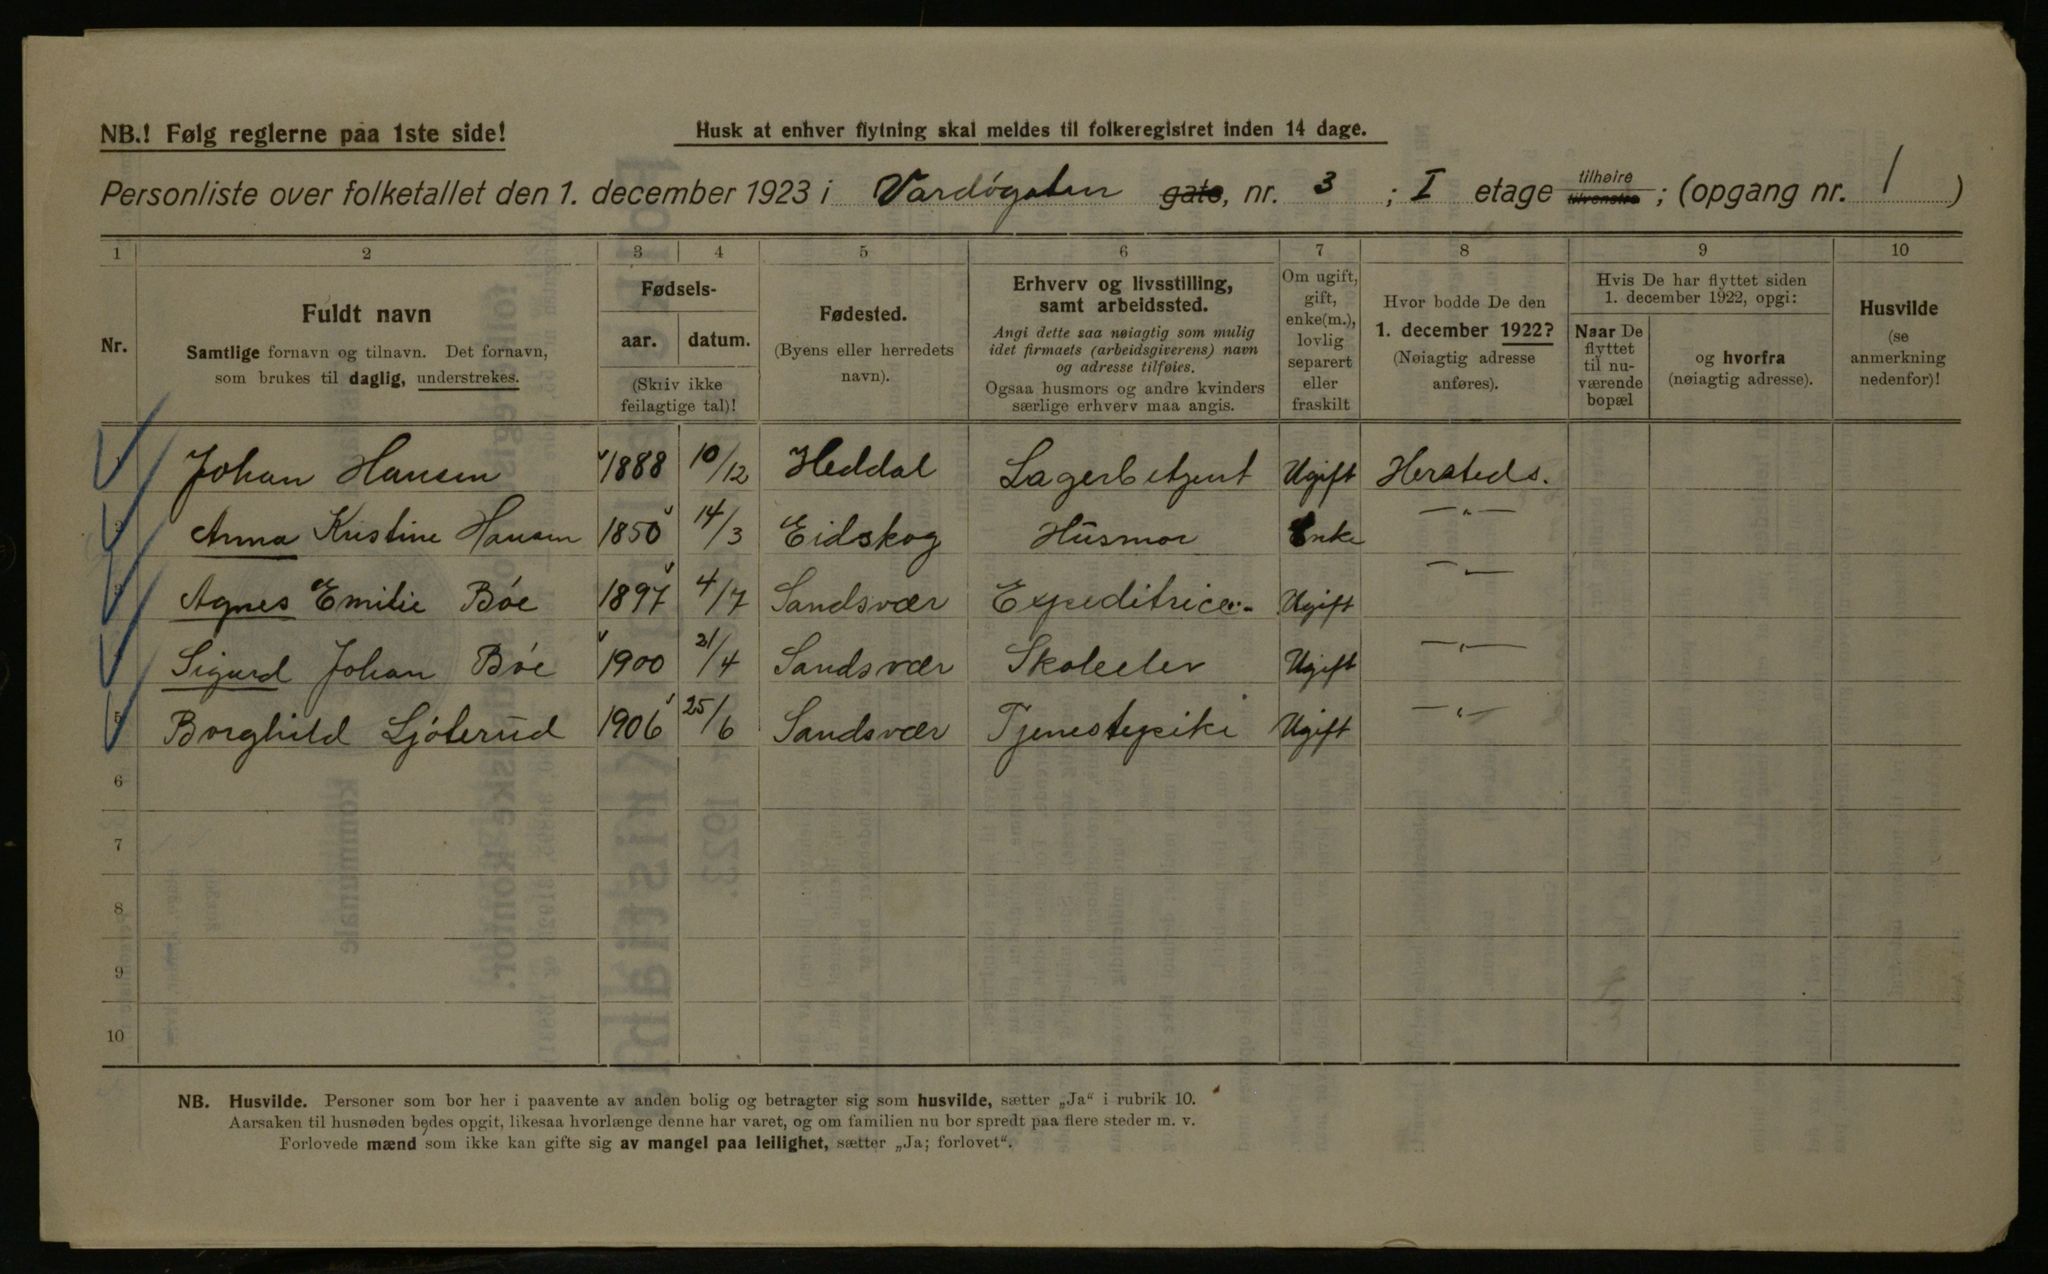 NB.! Følg reglerne paa 1ste side!
Husk at enhver flytning skal meldes til folkeregistret inden 14 dage.
Personliste over folketallet den 1. december 1923 i Vardøgaten gate, nr. 3 ; I etage tilhøire tilvenstre ; (opgang nr. 1 )
1 2 3 4 5 6 7 8 9 10
Nr.
Fuldt navn
Samtlige fornavn og tilnavn. Det fornavn,
som brukes til daglig, understrekes.
Fødsels-
aar. datum.
(Skriv ikke
feilagtige tal)!
Fødested.
(Byens eller herredets
navn).
Erhverv og livsstilling,
samt arbeidssted.
Angi dette saa nøiagtig som mulig
idet firmaets (arbeidsgiverens) navn
og adresse tilføies.
Ogsaa husmors og andre kvinders
særlige erhverv maa angis.
Om ugift,
gift,
enke(m.),
lovlig
separert
eller
fraskilt
Hvor bodde De den
1. december 1922?
(Nøiagtig adresse
anføres).
Hvis De har flyttet siden
1. december 1922, opgi:
Naar De
flyttet
til nu-
værende
bopæl
og hvorfra
(nøiagtig adresse).
Husvilde
(se
anmerkning
nedenfor)!
1 Johan Hansen 1888 10/12 Heddal Lagerbetjent Ugift Hersteds.
2 Anna Kristine Hansen 1850 14/3 Eidskog Husmor Enke —"—
3 Agnes Emilie Bøe 1897 4/7 Sandsvær Expeditrice. Ugift —"—
4 Sigurd Johan Bøe 1900 21/4 Sandsvær Skoleelev Ugift —"—
5 Borghild Ljøterud 1906 25/6 Sandsvær Tjenestepike Ugift —"—
6
7
8
9
10
NB. Husvilde. Personer som bor her i paavente av anden bolig og betragter sig som husvilde, sætter „Ja“ i rubrik 10.
Aarsaken til husnøden bedes opgit, likesaa hvorlænge denne har varet, og om familien nu bor spredt paa flere steder m. v.
Forlovede mænd som ikke kan gifte sig av mangel paa leilighet, sætter „Ja; forlovet“.